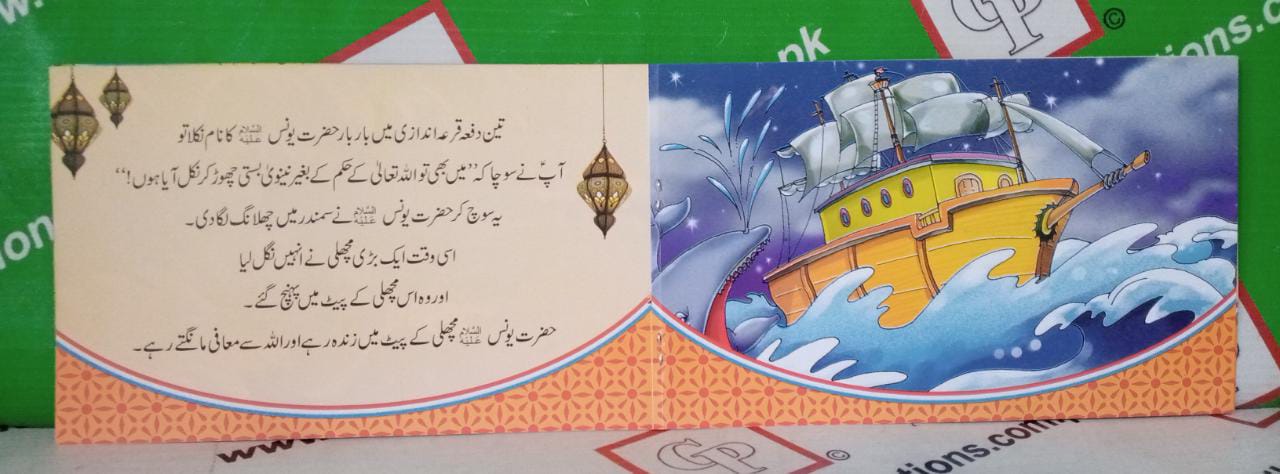 تین دفعہ قرعہ اندازی میں بار بار حضرت یونس علیہ السلام کا نام نکلا تو
آپؑ نے سوچا کہ ”میں بھی تو اللہ تعالیٰ کے حکم کے بغیر نینویٰ بستی چھوڑ کر نکل آیا ہوں!“
یہ سوچ کر حضرت یونس علیہ السلام نے سمندر میں چھلانگ لگا دی۔
اسی وقت ایک بڑی مچھلی نے انہیں نگل لیا
اور وہ اس مچھلی کے پیٹ میں پہنچ گئے۔
حضرت یونس علیہ السلام مچھلی کے پیٹ میں زندہ رہے اور اللہ سے معافی مانگتے رہے۔
www.
.pk
GP ©
ions.co
on
www.
GP ©
tions.com.p